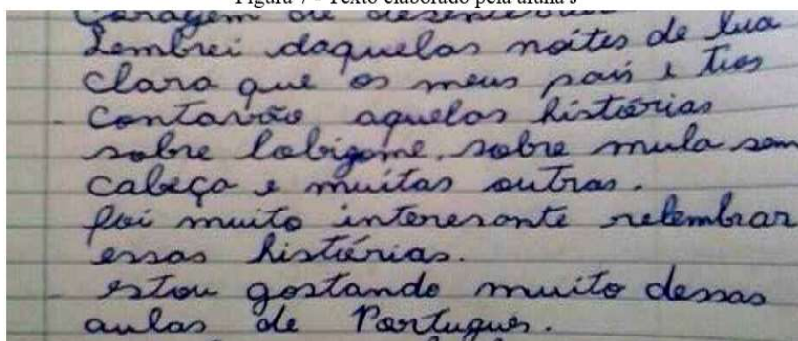 Figura 7 - Texto elaborado pela aluna J
Coragem de
Lembrei daquelas noites de lua
clara que os meus pais e tios
contavão aquelas histórias
sobre lobigome, sobre mula sem
cabeça e muitas outras.
foi muito interesante relembrar
essas histórias.
estou gostando muito dessas
aulas de Portugues.